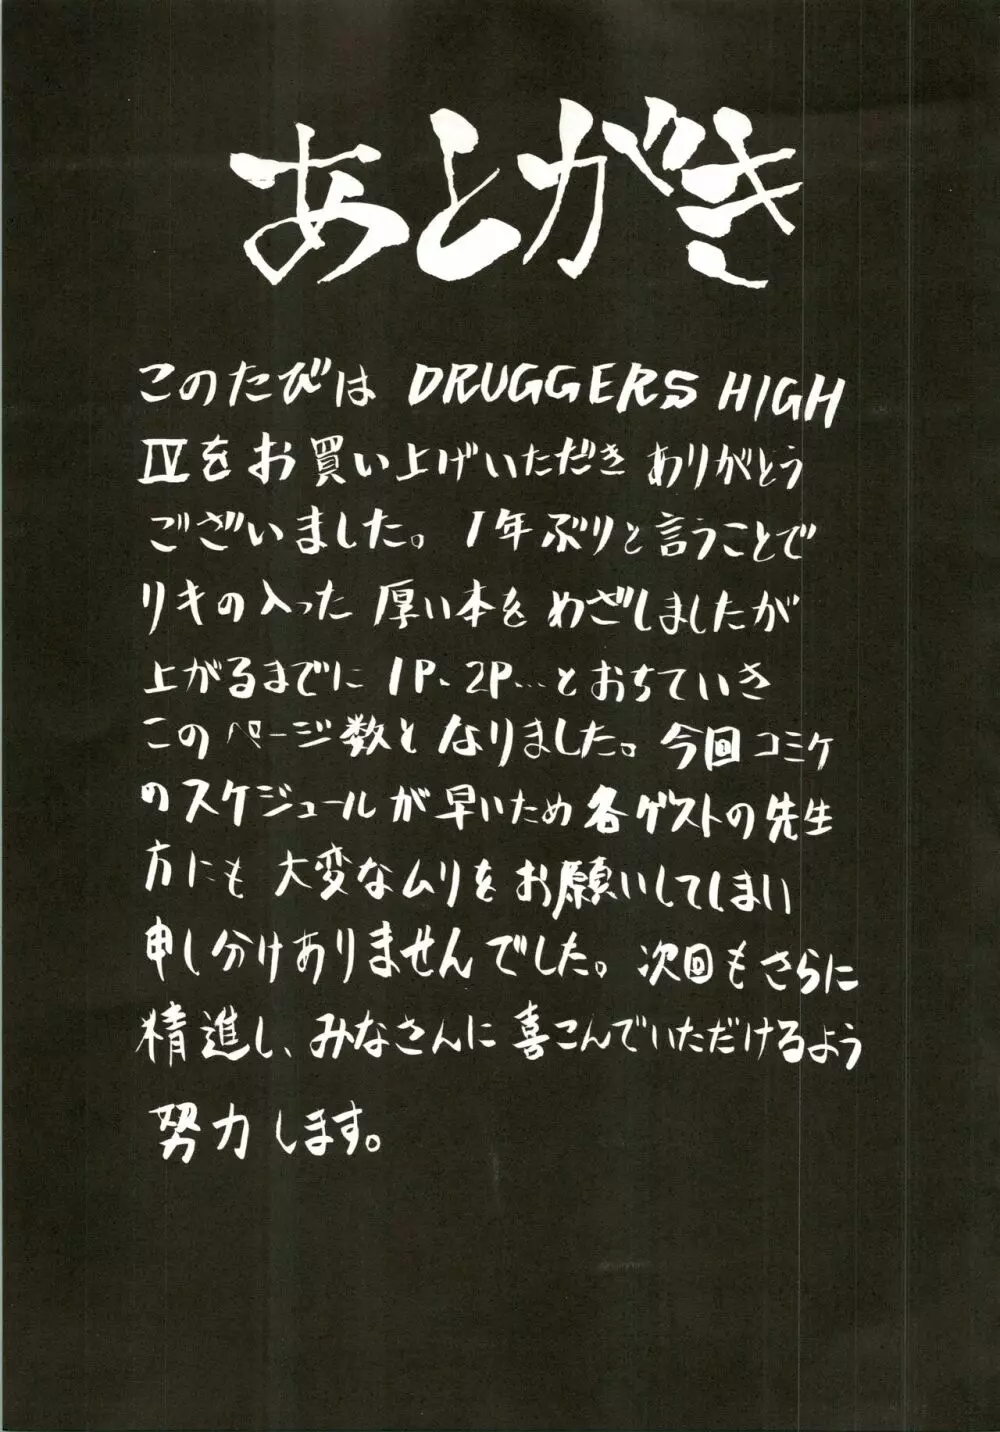 あとがき
このたびは DRUGGERS HIGH
Ⅳをお買い上げいただき ありがとう
ございました。1年ぶりと言うことで
リキの入った 厚い本を めざしましたが
上がるまでに 1P、2P…とおちていき
このページ数となりました。今回コミケ
のスケジュールが早いため各ゲストの先生
方にも 大変なムリをお願いしてしまい
申し分けありませんでした。次回もさらに
精進し、みなさんに喜こんでいただけるよう
努力します。